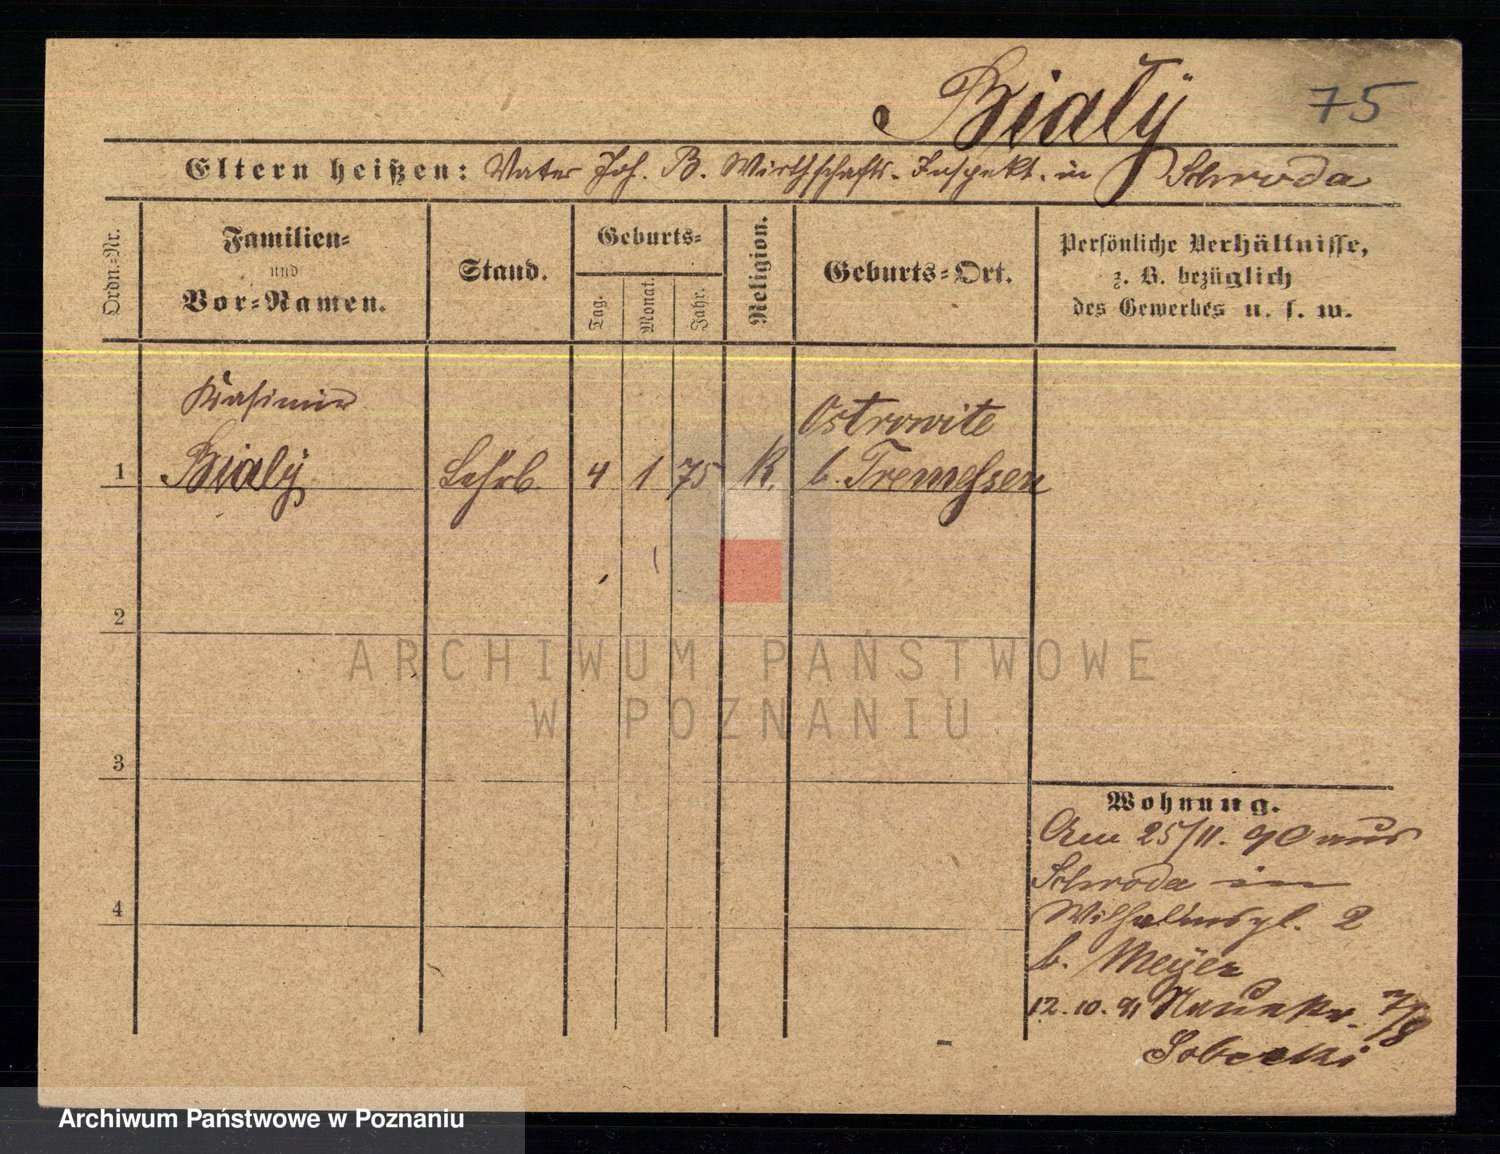 Białÿ 75
Eltern heißen: Vater Joh. B. Wirthschafts-Inspekt. in Schroda
Ordn.-Nr.
Familien-
und
Vor-Namen.
Stand.
Geburts-
Tag.
Monat.
Jahr.
Religion.
Geburts-Ort.
Persönliche Verhältnisse,
z. B. bezüglich
des Gewerbes u. s. w.
Kasimir
Ostrowite
1 Bialÿ Lehrb. 4 1 75 K. b. Tremessen
2
ARCHIWUM PAŃSTWOWE
W POZNANIU
3
Wohnung.
Am 25/11. 90 aus
Schroda in
4
Wilhelmspl. 2
b. Meÿer
12.10.91 7/8
Sobecki
Archiwum Państwowe w Poznaniu